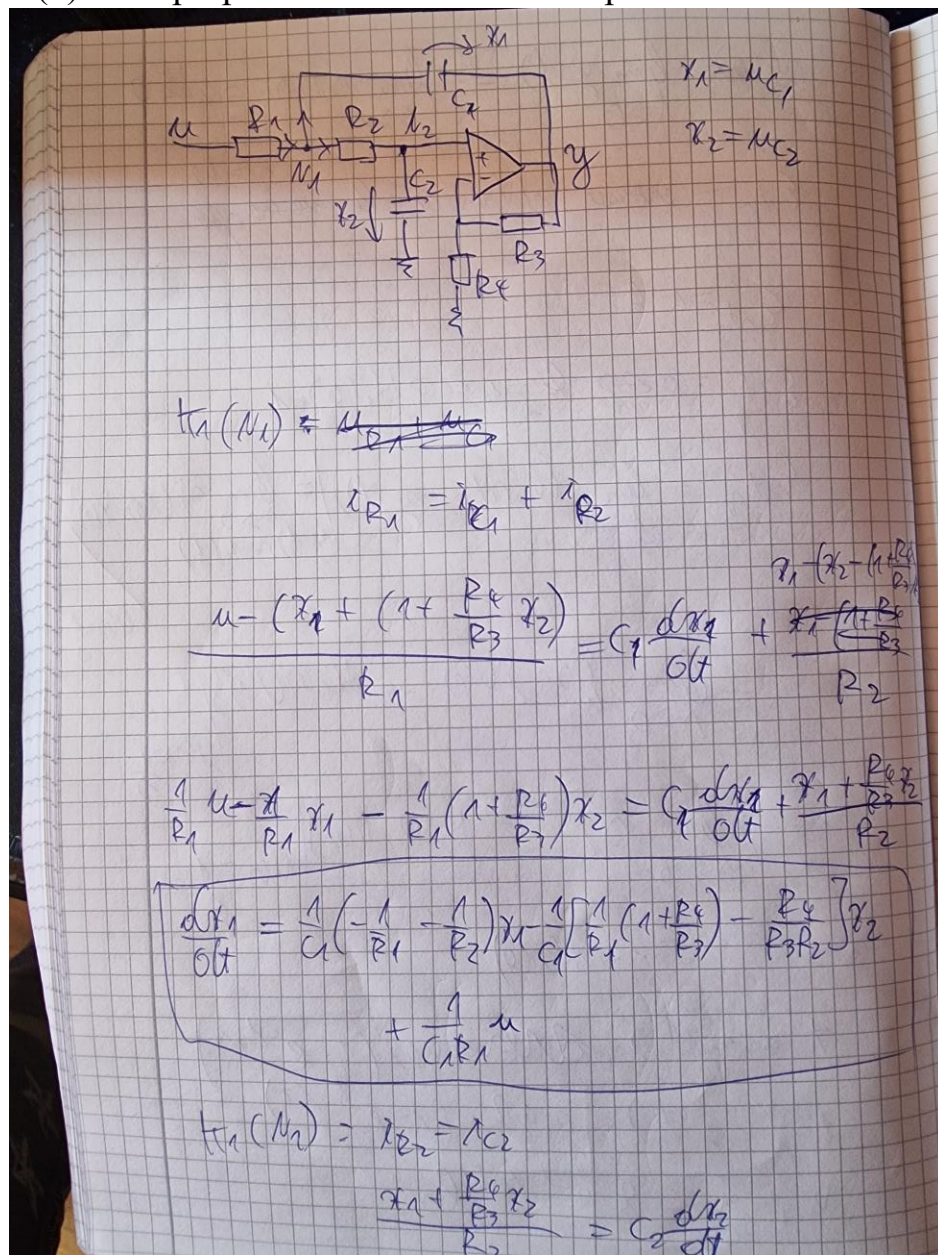 x₁
C₁
x₁ = u_C₁
u R₁ R₂ N₂
x₂ = u_C₂
N₁ C₂ + - y
x₂
R₃
R₄
K₁(N₁) =
i_R₁ = i_C₁ + i_R₂
x₁ - (x₂ - (1 + R₄/R₃
(u - (x₁ + (1 + R₄/R₃ x₂))/R₁ = C₁ dx₁/dt + /R₂
1/R₁ u - 1/R₁ x₁ - 1/R₁ (1 + R₄/R₃) x₂ = C₁ dx₁/dt + (x₁ + R₄/R₃ x₂)/R₂
dx₁/dt = 1/C₁ (-1/R₁ - 1/R₂) x₁ - 1/C₁ [1/R₁ (1 + R₄/R₃) - R₄/(R₃R₂)] x₂
+ 1/(C₁R₁) u
K₁(N₂) = i_R₂ = i_C₂
(x₁ + R₄/R₃ x₂)/R₂ = C₂ dx₂/dt